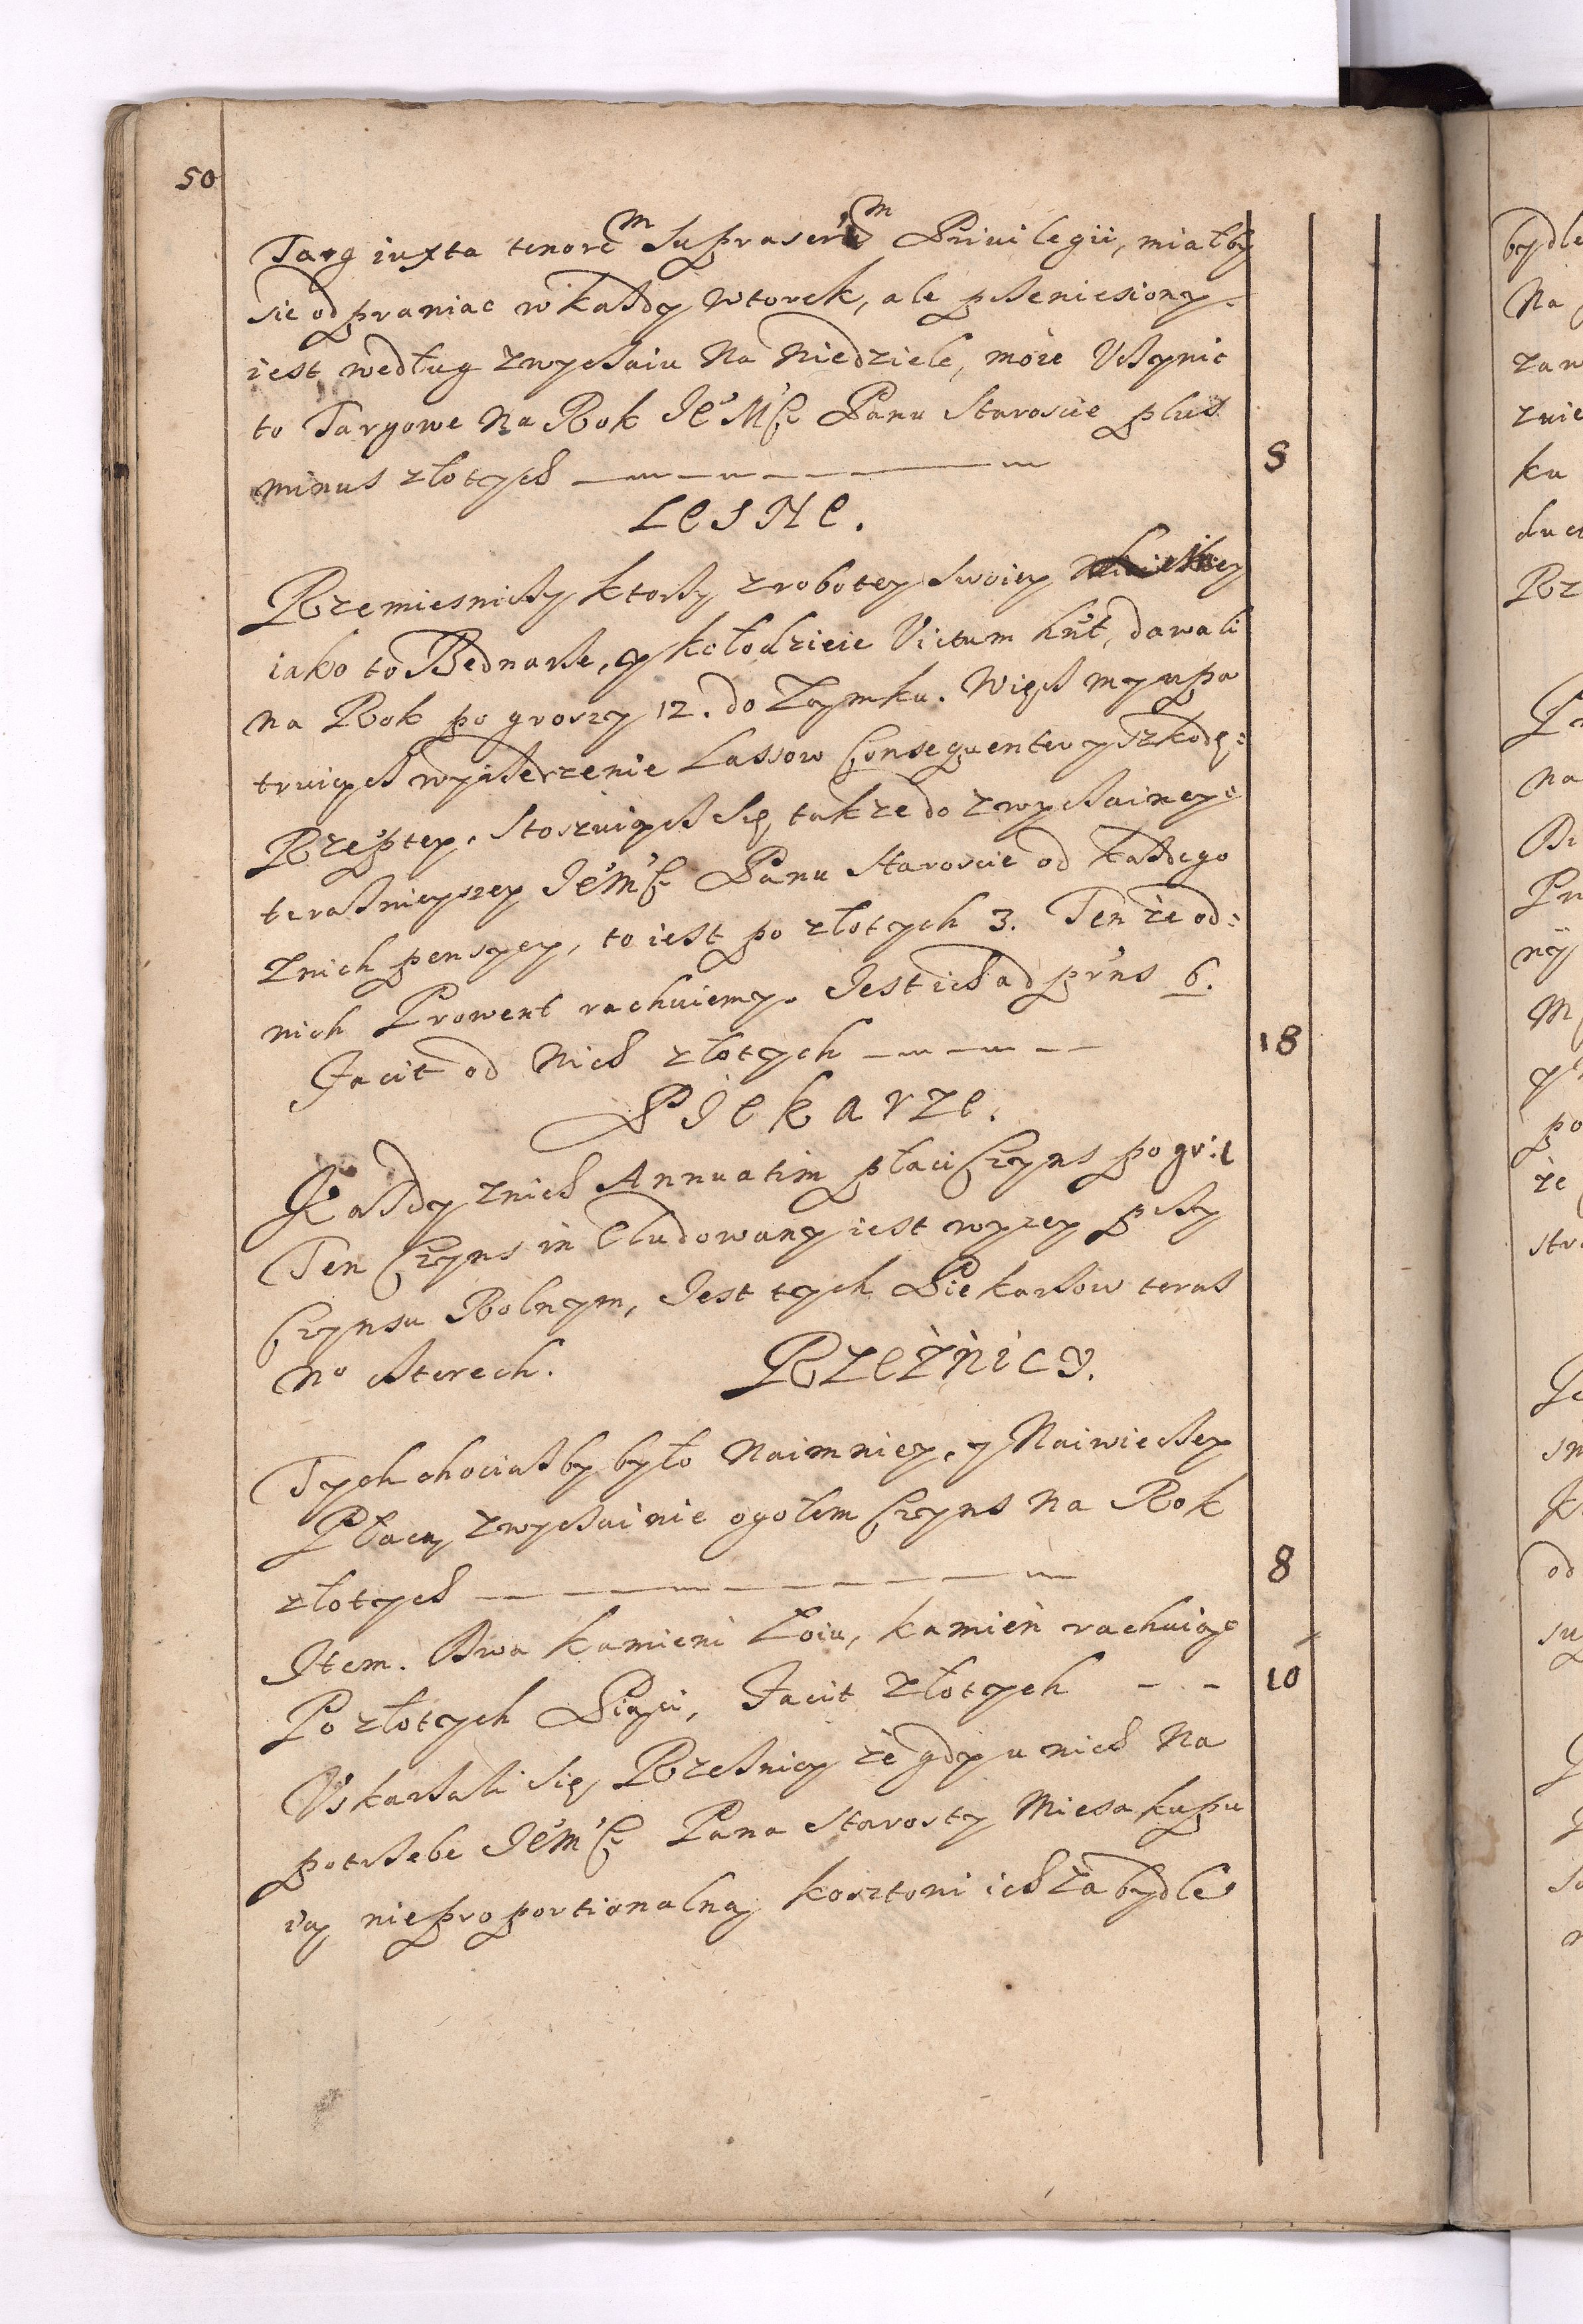 50
Targ iuxta tenorem suprascrium Priuilegii, miałby
sie odprawiac w każdy wtorek, ale przeniesiony
iest według zwyczaiu na Niedziele, może Uczynic
to Targowe na Rok Je Mści Panu Staroscie plus
minus złotych 5
LESNE.
Rzemiesnicy ktorzy z roboty swoiey
iako to Bednarze, y kołodzieie Victum hnt, dawali
na Rok po groszy 12. do Zamku. Więc my upa
truiąc wyniszczenie Lassow Consequenter y szkodę
Rzeptey, stosuiąc się także do zwyczainey
teraznieyszey JemC Panu Staroscie od każdego
z nich pensyey, to iest po złotych 3. Ten że od
nich Prowent rachuiemy. Jest ich ad prns 6.
Facit od nich złotych 18
PIEKARZE.
Każdy z nich Annuatim płaci Czyns po gr:
Ten Czyns in Cludowany iest wyzey przy
Czynsu Rolnym, Jest tych Piekarzow teraz
No czterech. RZEZNICY.
Tych chociażby było Naimniey, y Naiwiecey
Płacą zwyczainie ogołem Czyns na Rok
złotych 8
Item. Dwa kamieni Łoiu, kamień rachuiąc
Po złotych Pięci, Facit złotych 10
Uskarżali się Rzeznicy że gdy u nich Na
potrzebe JemC Pana Starosty Miesa kupu
ią nieproportionalną kosztowi ich za bydle